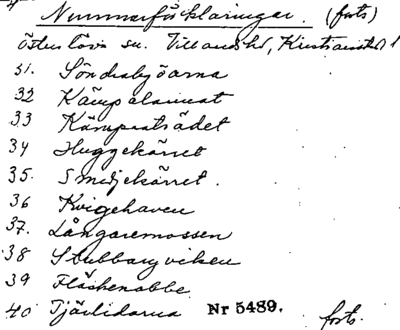 Nummerförklaringar. (forts)
Östra Torn sn. Villands hd, Kristianstads l
31. Söndrabyåarna
32 Kämpalamat
33 Kämparträdet
34 Huggekärret
35. Smedjekärret.
36 Kvigehaven
37. Långaremossen
38 Stubbarpviken
39 Fläskenabbe
40 Tjärlidarna Nr 5489. forts.